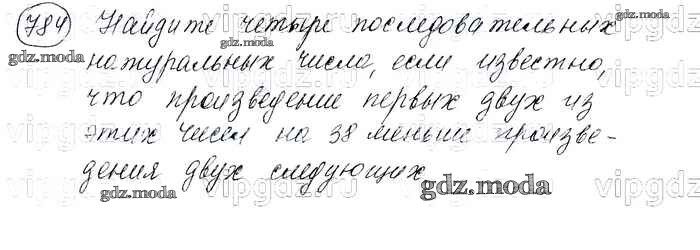 784 Найдите четыре последовательных
натуральных числа, если известно,
что произведение первых двух из
этих чисел на 38 меньше произве-
дения двух следующих
gdz.moda
gdz.moda
gdz.moda
gdz.moda
gdz.moda
vipgdz